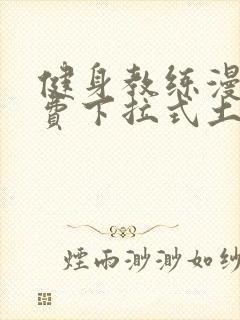 健身教练漫
費下拉式土
煙雨渺渺如纱